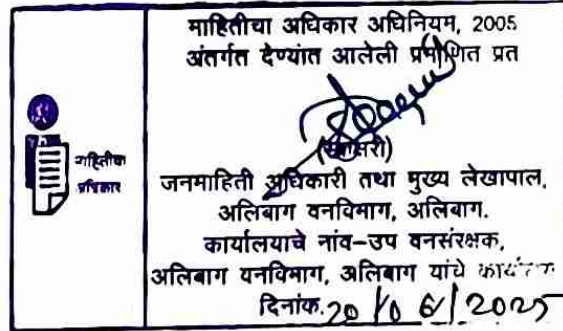 माहितीचा अधिकार अधिनियम, 2005
अंतर्गत देण्यांत आलेली प्रमाणित प्रत
माहितीचा
अधिकार
(स्वाक्षरी)
जनमाहिती अधिकारी तथा मुख्य लेखापाल,
अलिबाग वनविभाग, अलिबाग.
कार्यालयाचे नांव-उप वनसंरक्षक,
अलिबाग वनविभाग, अलिबाग यांचे कार्यालय
दिनांक. 20/06/2025